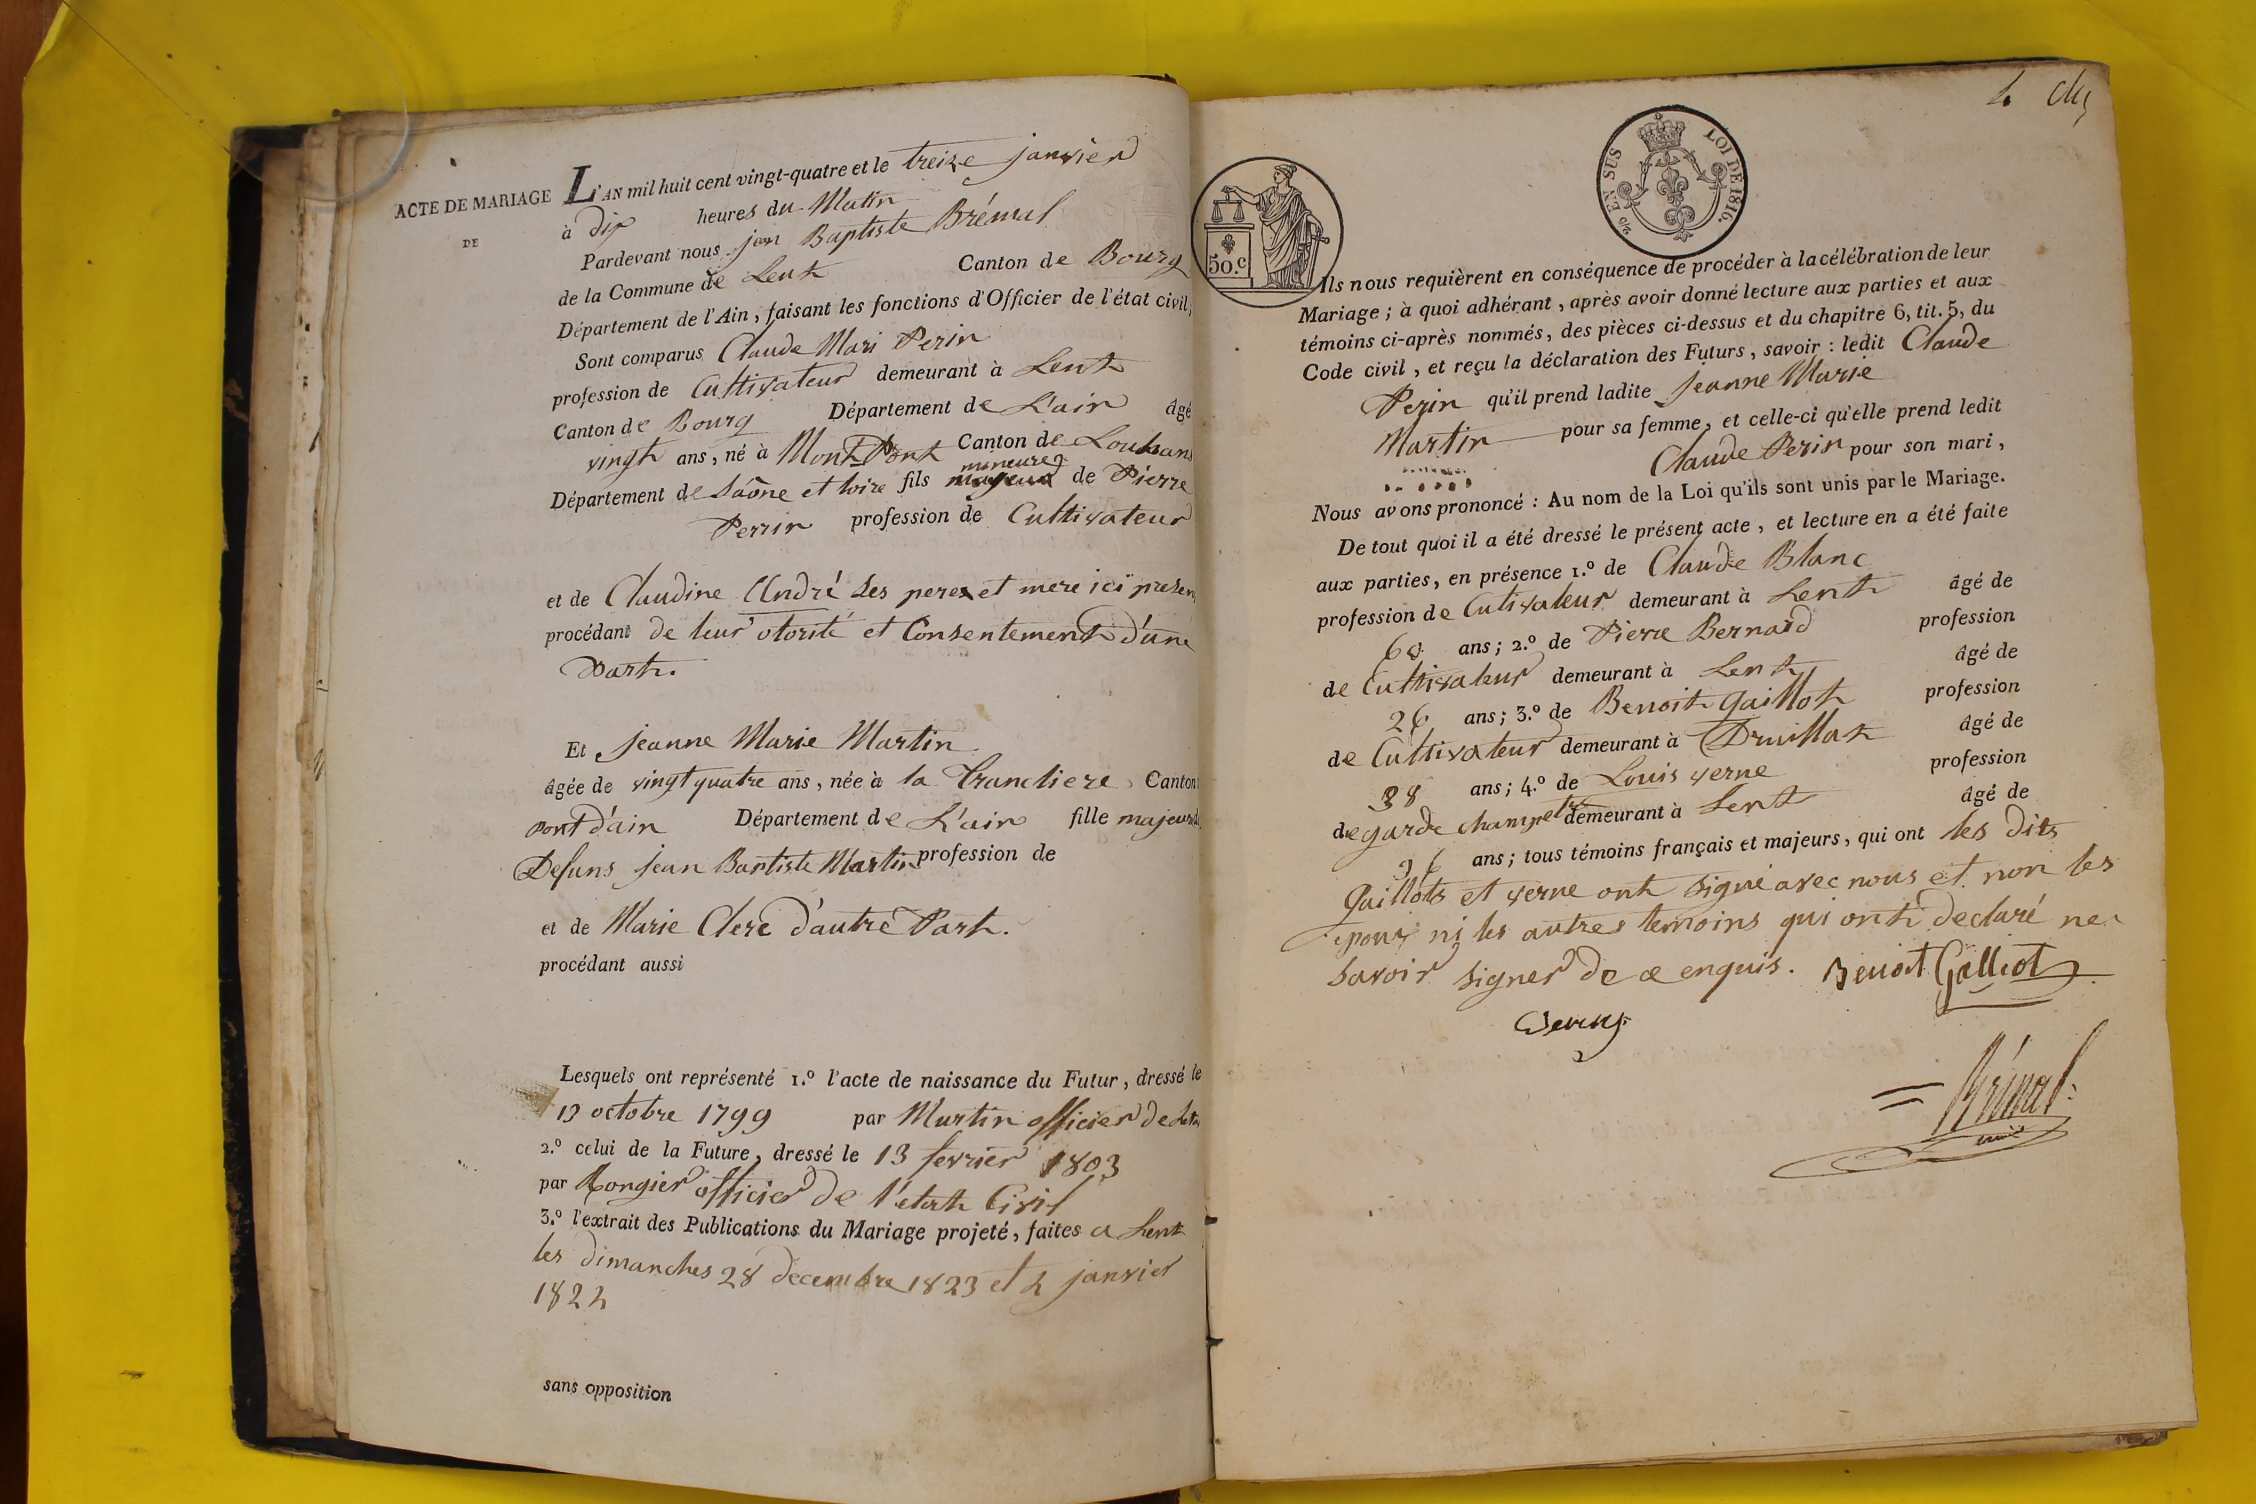 ACTE DE MARIAGE
DE
L'AN mil huit cent vingt-quatre et le treize janvier
à dix heures du Matin
Pardevant nous jean Baptiste Brémal
de la Commune de Lent Canton de Bourg
Département de l'Ain, faisant les fonctions d'Officier de l'état civil,
Sont comparus Claude Mari Perin
profession de Cultivateur demeurant à Lent
Canton de Bourg Département de L'ain âgé
vingt ans, né à Mont Pont Canton de Louhans
Département de Saône et loire fils mineure de Pierre
Perrin profession de Cultivateur
et de Claudine André ses peres et mere ici presen
procédant de leur otorité et Consentement d'une
Part.
Et jeanne Marie Martin
âgée de vingt quatre ans, née à la Trancliere Canton
pont d'ain Département de L'ain fille majeure
Defuns jean Baptiste Martin profession de
et de Marie Clerc d'autre Part.
procédant aussi
Lesquels ont représenté 1.º l'acte de naissance du Futur, dressé le
13 octobre 1799 par Martin officier de
2.º celui de la Future, dressé le 13 fevrier 1803
par Rongier officier de l'etat Civil
3.º l'extrait des Publications du Mariage projeté, faites a Lent
les dimanches 28 decembre 1823 et 4 janvier
1824
sans opposition
4
EN SUS
LOI DE 1816.
50.c
Ils nous requièrent en conséquence de procéder à la célébration de leur
Mariage; à quoi adhérant, après avoir donné lecture aux parties et aux
témoins ci-après nommés, des pièces ci-dessus et du chapitre 6, tit. 5, du
Code civil, et reçu la déclaration des Futurs, savoir: ledit Claude
Perin qu'il prend ladite jeanne Marie
Martin pour sa femme, et celle-ci qu'elle prend ledit
Claude Perin pour son mari,
Nous avons prononcé: Au nom de la Loi qu'ils sont unis par le Mariage.
De tout quoi il a été dressé le présent acte, et lecture en a été faite
aux parties, en présence 1.º de Claude Blanc
profession de Cutivateur demeurant à Lent âgé de
60 ans; 2.º de Pierre Bernard profession
de Cultivateur demeurant à Lent âgé de
26 ans; 3.º de Benoit Gaillot profession
de Cultivateur demeurant à Druillat âgé de
38 ans; 4.º de Louis verne profession
de garde champetre demeurant à Lent âgé de
36 ans; tous témoins français et majeurs, qui ont les dits
Gaillots et verne ont signé avec nous et non les
epoux ni les autres temoins qui ont declaré ne
savoir signer de ce enquis. Benoit Galliot
Verne
Brémal